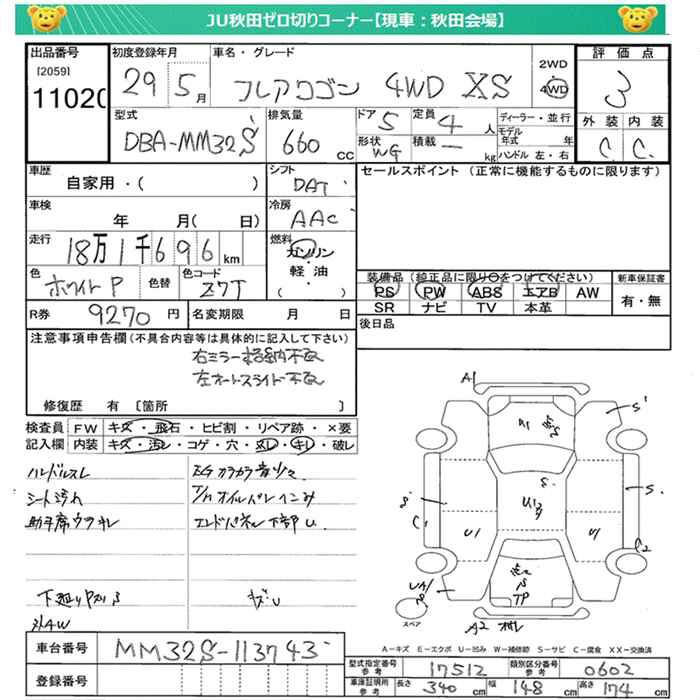 JU秋田ゼロ切りコーナー【現車：秋田会場】
出品番号
[2059]
1102
初度登録年月
29 5月
車名・グレード
フレアワゴン 4WD XS
2WD
4WD
評価点
3
外装 内装
C C
型式
DBA-MM32S
排気量
660 cc
ドア 5
定員 4人
形状 WG
積載 ー kg
ディーラー・並行
モデル年式 年
ハンドル 左・右
車歴
自家用・( )
シフト
DAT
車検
年 月( 日)
冷房
AAC
走行
18万1千696km
燃料
ガソリン・軽油・( )
色
ホワイトP
色替
色コード
Z7T
R券 9270円
名変期限 月 日
セールスポイント (正常に機能するものに限ります)
装備品 (純正品に限り○をつけてください)
PS PW ABS エアB AW
SR ナビ TV 本革
新車保証書
有・無
後日品
注意事項申告欄(不具合内容等は具体的に記入して下さい)
右ミラー格納不良
左オートスライド不良
修復歴 有 〔箇所 〕
検査員記入欄
FW キズ・飛石・ヒビ割・リペア跡・×要
内装 キズ・汚レ・コゲ・穴・スレ・キレ・破レ
ハンドルスレ
シート汚れ
助手席ウラキレ
EGカラカラ音少々
T/Mオイルパンへこみ
エンドパネル下部U
下廻りサビS
キズU
A1
A2
S
C1
C2
U1
TP
スペア
A－キズ E－エクボ U－凹み W－補修跡 S－サビ C－腐食 XX－交換済
車台番号
MM32S-113743
登録番号
型式指定番号 参考
17512
類別区分番号 参考
0602
車庫証明用 参考
長さ 340cm
幅 148cm
高さ 174cm